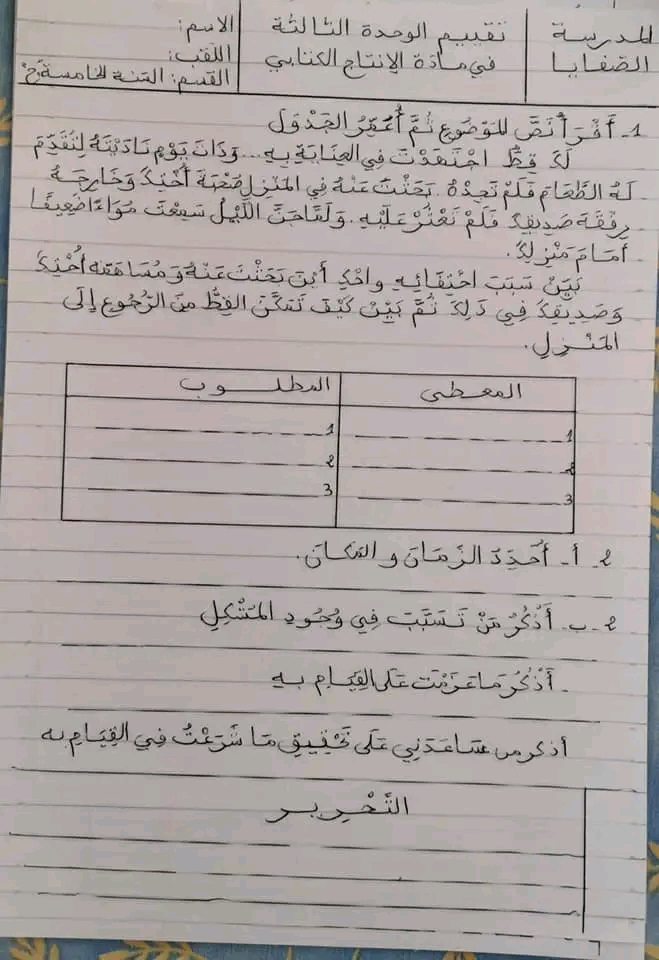 المدرسة
الصفايا
تقييم الوحدة الثالثة
في مادة الإنتاج الكتابي
الاسم:
اللقب:
القسم: السنة الخامسة "ح"
1- أَقْرَأُ نَصَّ المَوْضُوعِ ثُمَّ أُعَمِّرُ الجَدْوَلَ
لَكَ قِطٌّ اجْتَهَدْتَ فِي العِنَايَةِ بِهِ... وَذَاتَ يَوْمٍ نَادَيْتَهُ لِتُقَدِّمَ
لَهُ الطَّعَامَ فَلَمْ تَجِدْهُ. بَحَثْتَ عَنْهُ فِي المَنْزِلِ صُحْبَةَ أُخْتِكَ وَخَارِجَهُ
رِفْقَةَ صَدِيقِكَ فَلَمْ تَعْثُرْ عَلَيْهِ. وَلَمَّا جَنَّ اللَّيْلُ سَمِعْتَ مُوَاءً ضَعِيفًا
أَمَامَ مَنْزِلِكَ.
بَيِّنْ سَبَبَ اخْتِفَائِهِ واحْكِ أَيْنَ بَحَثْتَ عَنْهُ وَمُسَاهَمَة أُخْتِكَ
وَصَدِيقِكَ فِي ذَلِكَ ثُمَّ بَيِّنْ كَيْفَ تَمَكَّنَ القِطُّ مِنَ الرُّجُوعِ إِلَى
المَنْزِلِ.
المعطى المطلوب
1 1
2 2
3 3
2- أ- أُحَدِّدُ الزَّمَانَ و المَكَانَ.
2- ب- أَذْكُرُ مَنْ تَسَبَّبَ فِي وُجُودِ المُشْكِلِ
- أَذْكُرُ مَا عَزَمْتُ عَلَى القِيَامِ بِهِ
أذكر من سَاعَدَنِي عَلَى تَحْقِيقِ مَا شَرَعْتُ فِي القِيَامِ به
التَّحْرِير